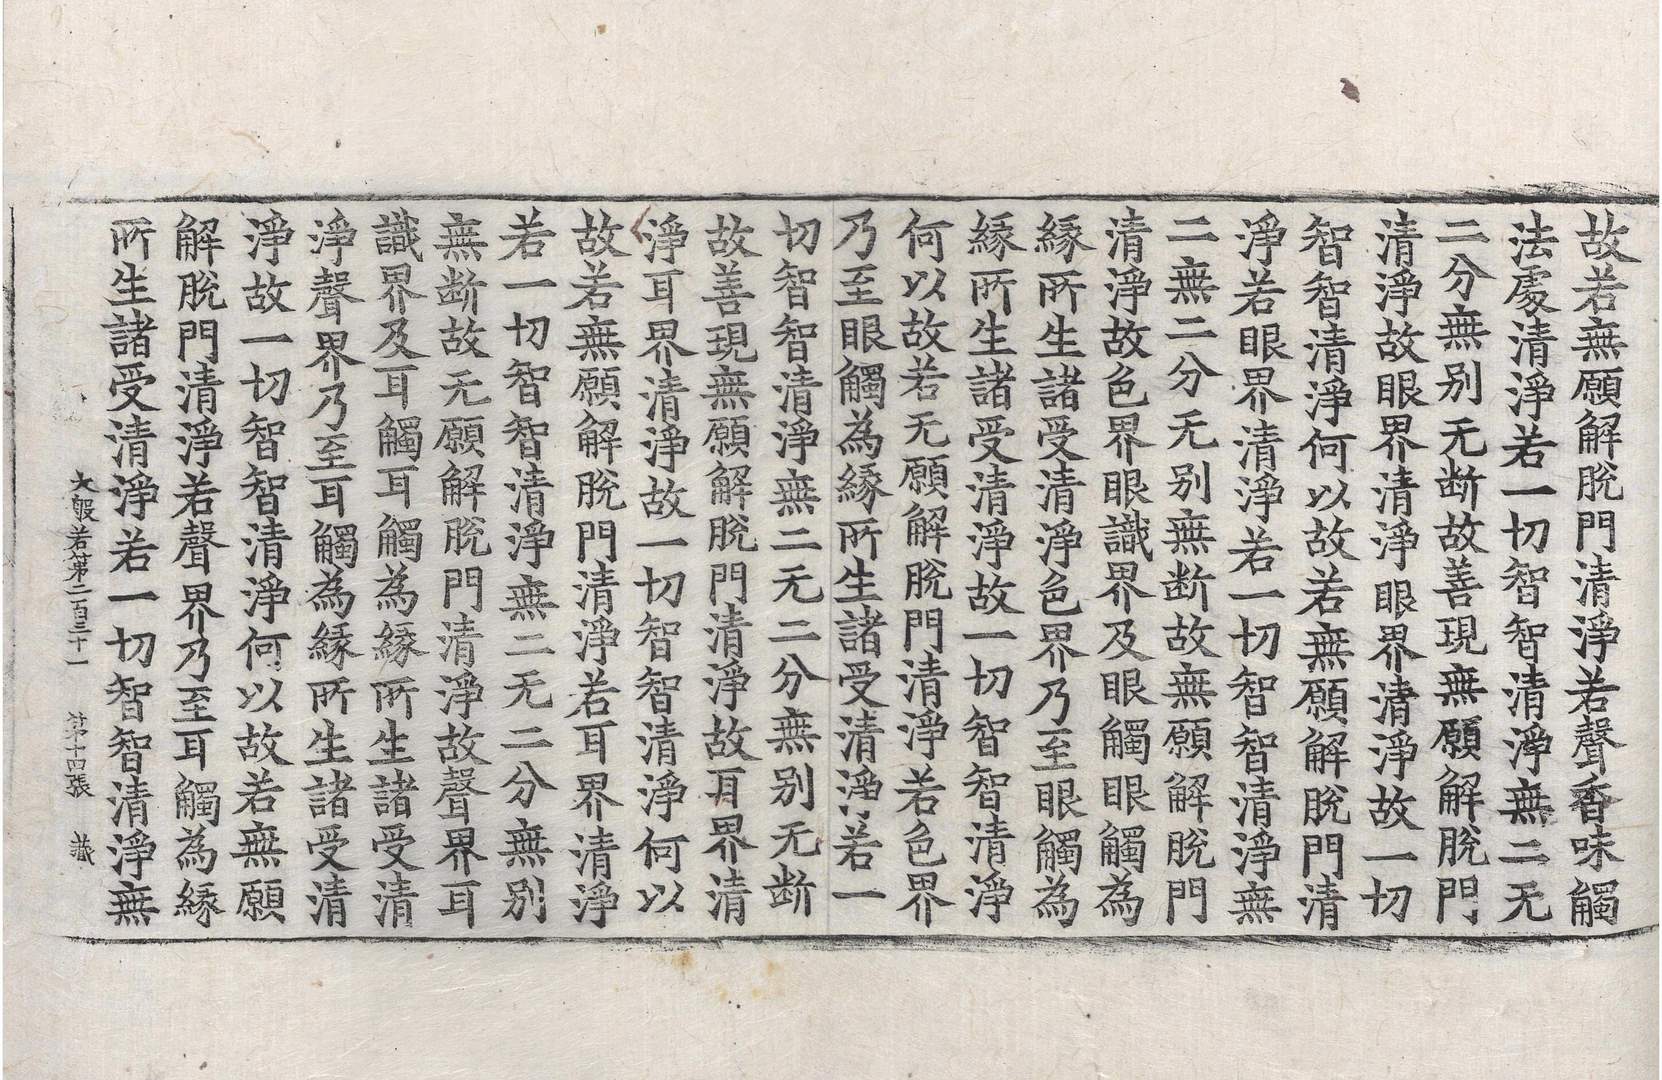 故若無願解脫門清淨若聲香味觸
法處清淨若一切智智清淨無二无
二分無別无断故善現無願解脫門
清淨故眼界清淨眼界清淨故一切
智智清淨何以故若無願解脫門清
淨若眼界清淨若一切智智清淨無
二無二分无別無断故無願解脫門
清淨故色界眼識界及眼觸眼觸為
緣所生諸受清淨色界乃至眼觸為
緣所生諸受清淨故一切智智清淨
何以故若无願解脫門清淨若色界
乃至眼觸為緣所生諸受清淨若一
切智智清淨無二无二分無別无断
故善現無願解脫門清淨故耳界清
淨耳界清淨故一切智智清淨何以
故若無願解脫門清淨若耳界清淨
若一切智智清淨無二无二分無別
無断故无願解脫門清淨故聲界耳
識界及耳觸耳觸為緣所生諸受清
淨聲界乃至耳觸為緣所生諸受清
淨故一切智智清淨何以故若無願
解脫門清淨若聲界乃至耳觸為緣
所生諸受清淨若一切智智清淨無
大般若第二百三十一 第十四張 藏